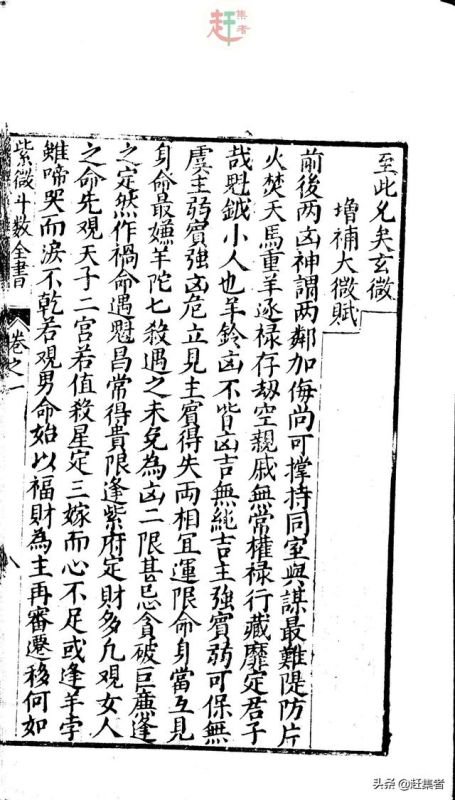 赶集者
至此允矣玄微
增補大微賦
前後两凶神謂两鄰加侮尚可撑持同室與謀最難隄防片
火焚天馬重羊逐禄存刼空親戚無常權禄行藏靡定君子
哉魁鉞小人也羊鈴凶不皆凶吉無純吉主強賓弱可保無
虞主弱賓強凶危立見主賓得失両相冝運限命身當互見
身命最嫌羊陀七殺遇之未免為凶二限甚忌貪破巨廉逢
之定然作禍命遇魁昌常得貴限逢紫府定財多凢觀女人
之命先觀天子二宮若值殺星定三嫁而心不足或逢羊孛
雖啼哭而淚不乾若觀男命始以福財為主再審遷移何如
紫微斗數全書 卷之一 八
头条 @赶集者